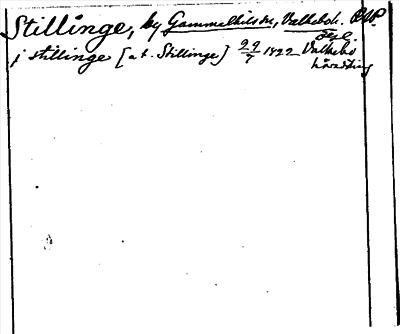 Stillinge, by Gammelkils sn, Valkebo h. Ögl.
j stillinge [at. Stillinge] 22/7 1422 Valkebo
häradsting